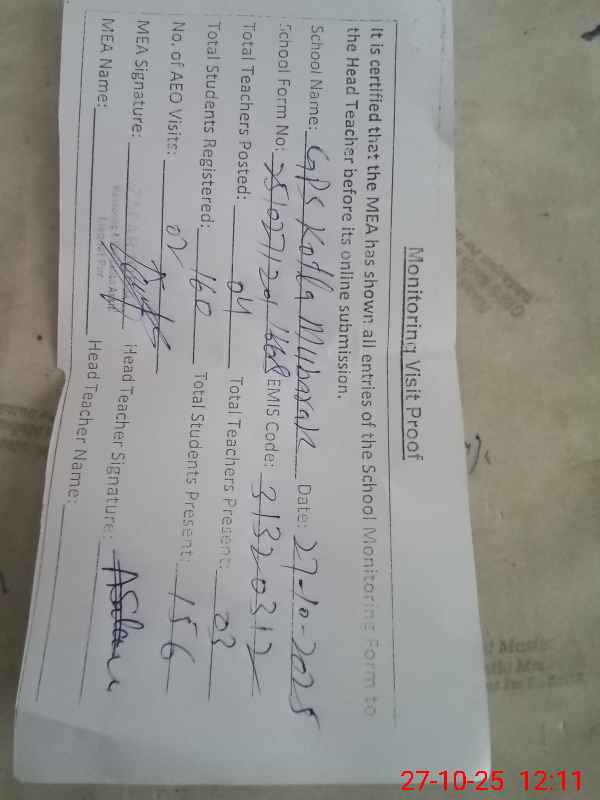 Monitoring Visit Proof
It is certified that the MEA has shown all entries of the School Monitoring Form to
the Head Teacher before its online submission.
School Name: GPS Kotla Mubarak Date: 27-10-2025
School Form No: EMIS Code: 31320312
Total Teachers Posted: 04 Total Teachers Present: 03
Total Students Registered: 160 Total Students Present: 156
No. of AEO Visits: 02
MEA Signature: Head Teacher Signature: Aslam
MEA Name: Head Teacher Name:
27-10-25 12:11